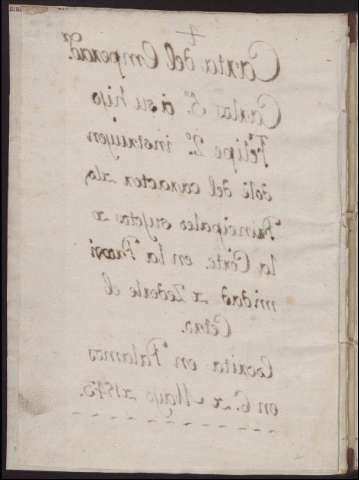 +
Carta del Emperad.r
Carlos 5.o a su hijo
Felipe 2.o instruyen
dole del caracter de los
Principales sujetos de
la Corte, en la Proxi
midad de Zederle el
Cetro.
Escrita en Palamos
en 6. de Mayo de 1543.